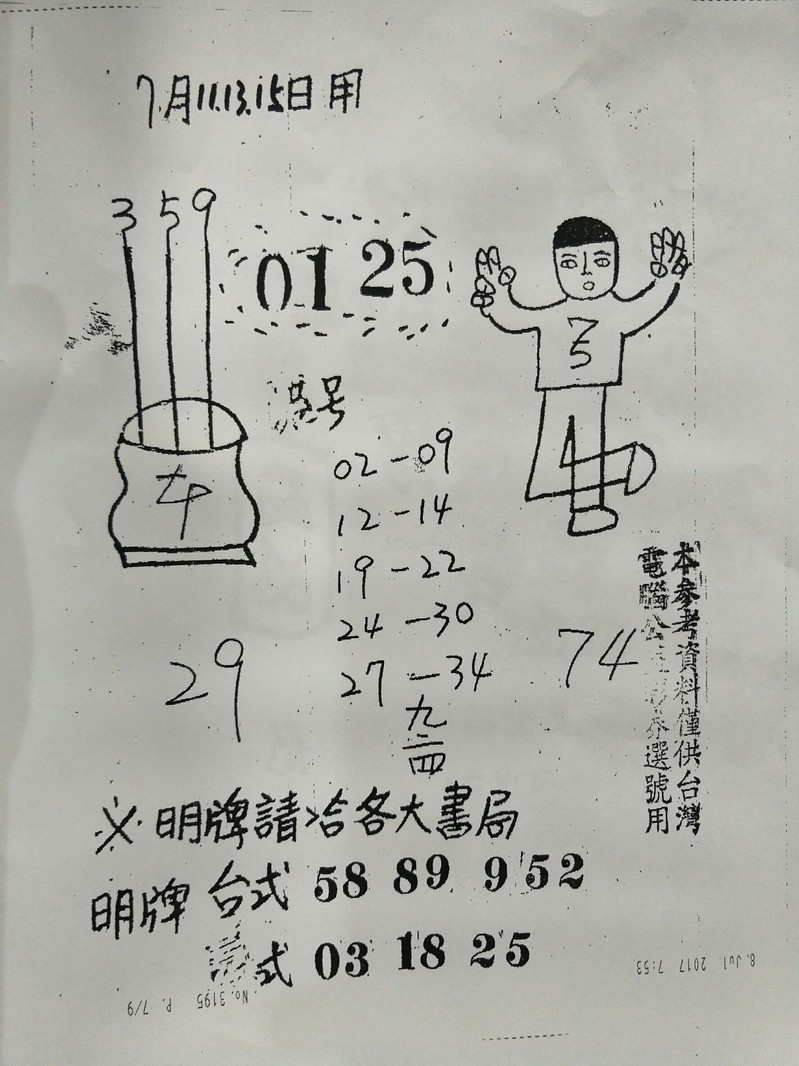 7月11.13.15日用
3 5 9
01 25
75
号
02-09
12-14
19-22
24-30
27-34
九
二四
29
74
本參考資料僅供台灣
電腦公益彩券選號用
※明牌請洽各大書局
明牌 台式 58 89 952
式 03 18 25
8. Jul. 2017 7:53
No. 3195 P. 7/9